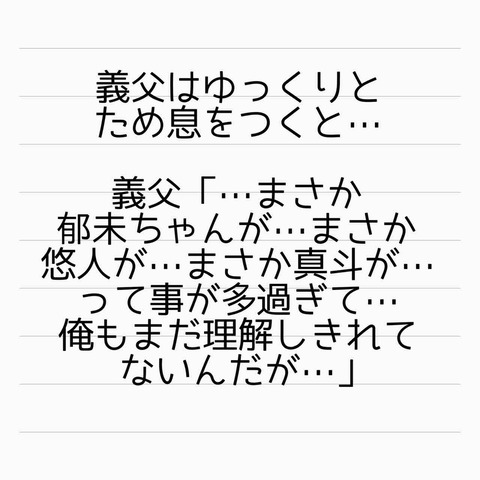 義父はゆっくりと
ため息をつくと…
義父「…まさか
郁未ちゃんが…まさか
悠人が…まさか真斗が…
って事が多過ぎて…
俺もまだ理解しきれて
ないんだが…」